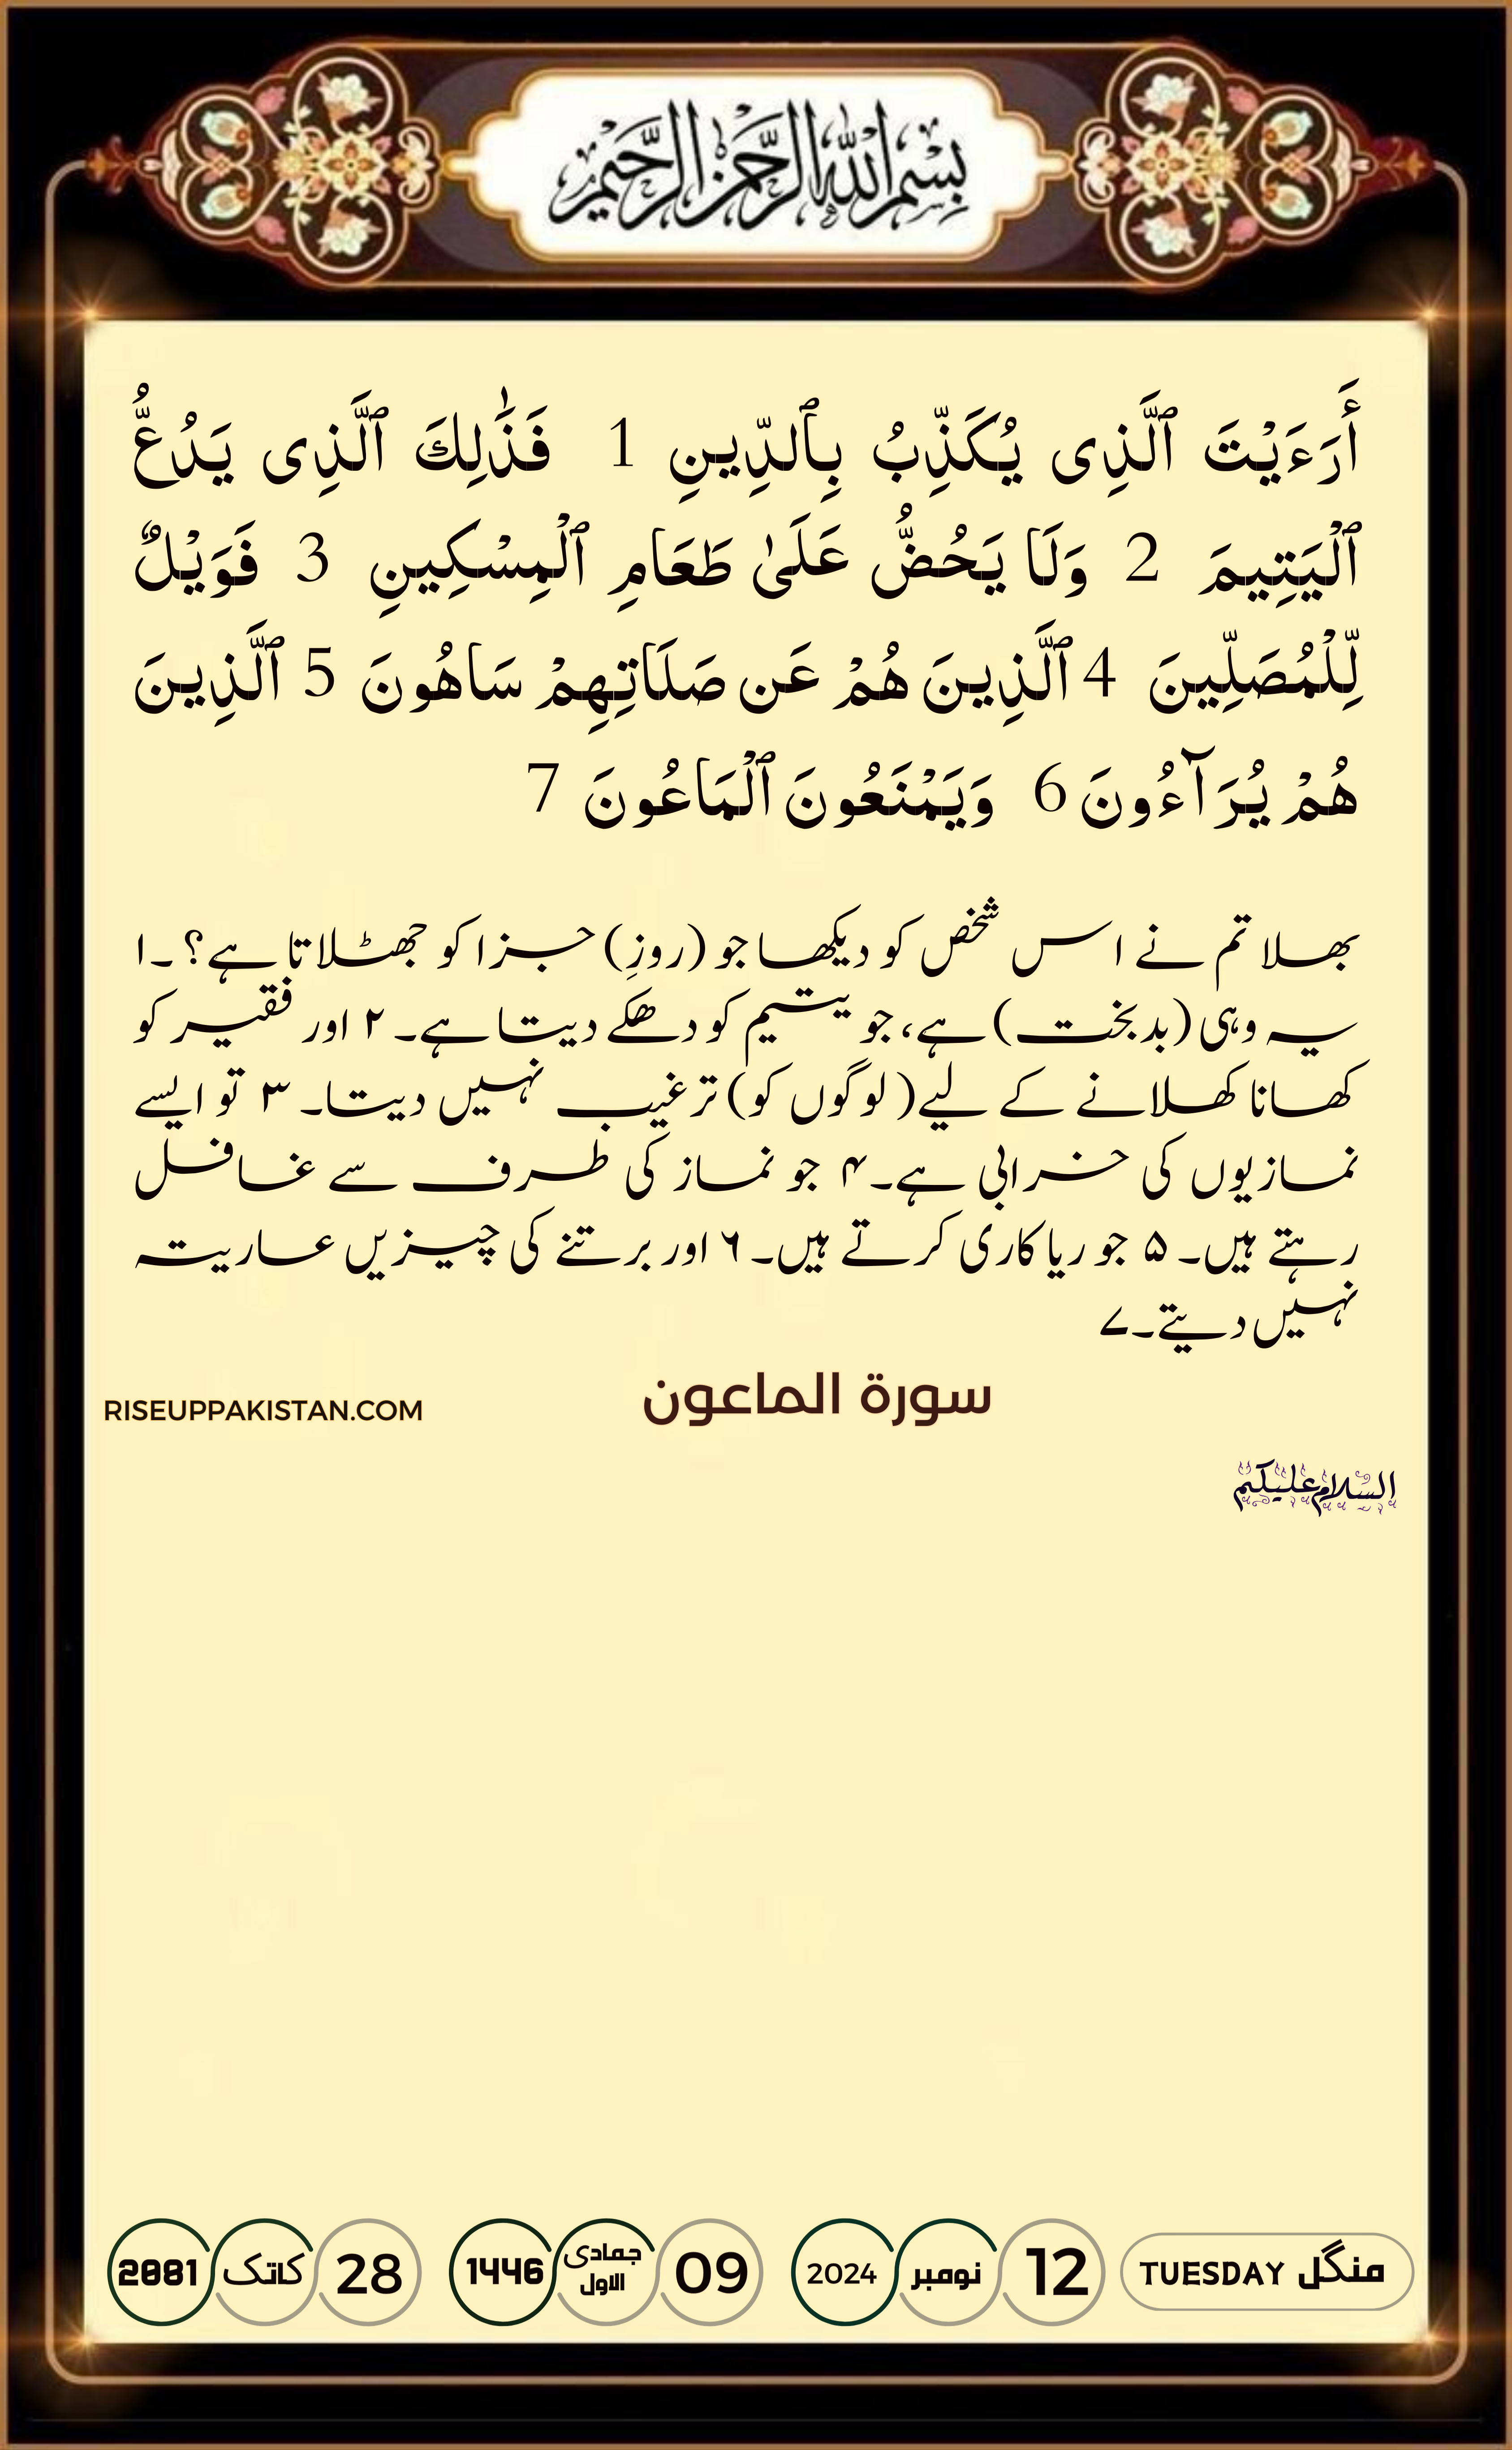 بِسْمِ اللهِ الرَّحْمٰنِ الرَّحِيْمِ
أَرَءَيْتَ ٱلَّذِى يُكَذِّبُ بِٱلدِّينِ 1 فَذَٰلِكَ ٱلَّذِى يَدُعُّ
ٱلْيَتِيمَ 2 وَلَا يَحُضُّ عَلَىٰ طَعَامِ ٱلْمِسْكِينِ 3 فَوَيْلٌ
لِّلْمُصَلِّينَ 4 ٱلَّذِينَ هُمْ عَن صَلَاتِهِمْ سَاهُونَ 5 ٱلَّذِينَ
هُمْ يُرَآءُونَ 6 وَيَمْنَعُونَ ٱلْمَاعُونَ 7
بھلا تم نے اس شخص کو دیکھا جو (روزِ) جزا کو جھٹلاتا ہے؟۔۱
یہ وہی (بدبخت) ہے، جو یتیم کو دھکے دیتا ہے۔ ۲ اور فقیر کو
کھانا کھلانے کے لیے( لوگوں کو) ترغیب نہیں دیتا۔ ۳ تو ایسے
نمازیوں کی خرابی ہے۔۴ جو نماز کی طرف سے غافل
رہتے ہیں۔ ۵ جو ریاکاری کرتے ہیں۔ ۶ اور برتنے کی چیزیں عاریتہ
نہیں دیتے۔۷
سورۃ الماعون
RISEUPPAKISTAN.COM
السلام علیکم
منگل TUESDAY
12 نومبر 2024
09 جمادی الاول 1446
28 کاتک 2081